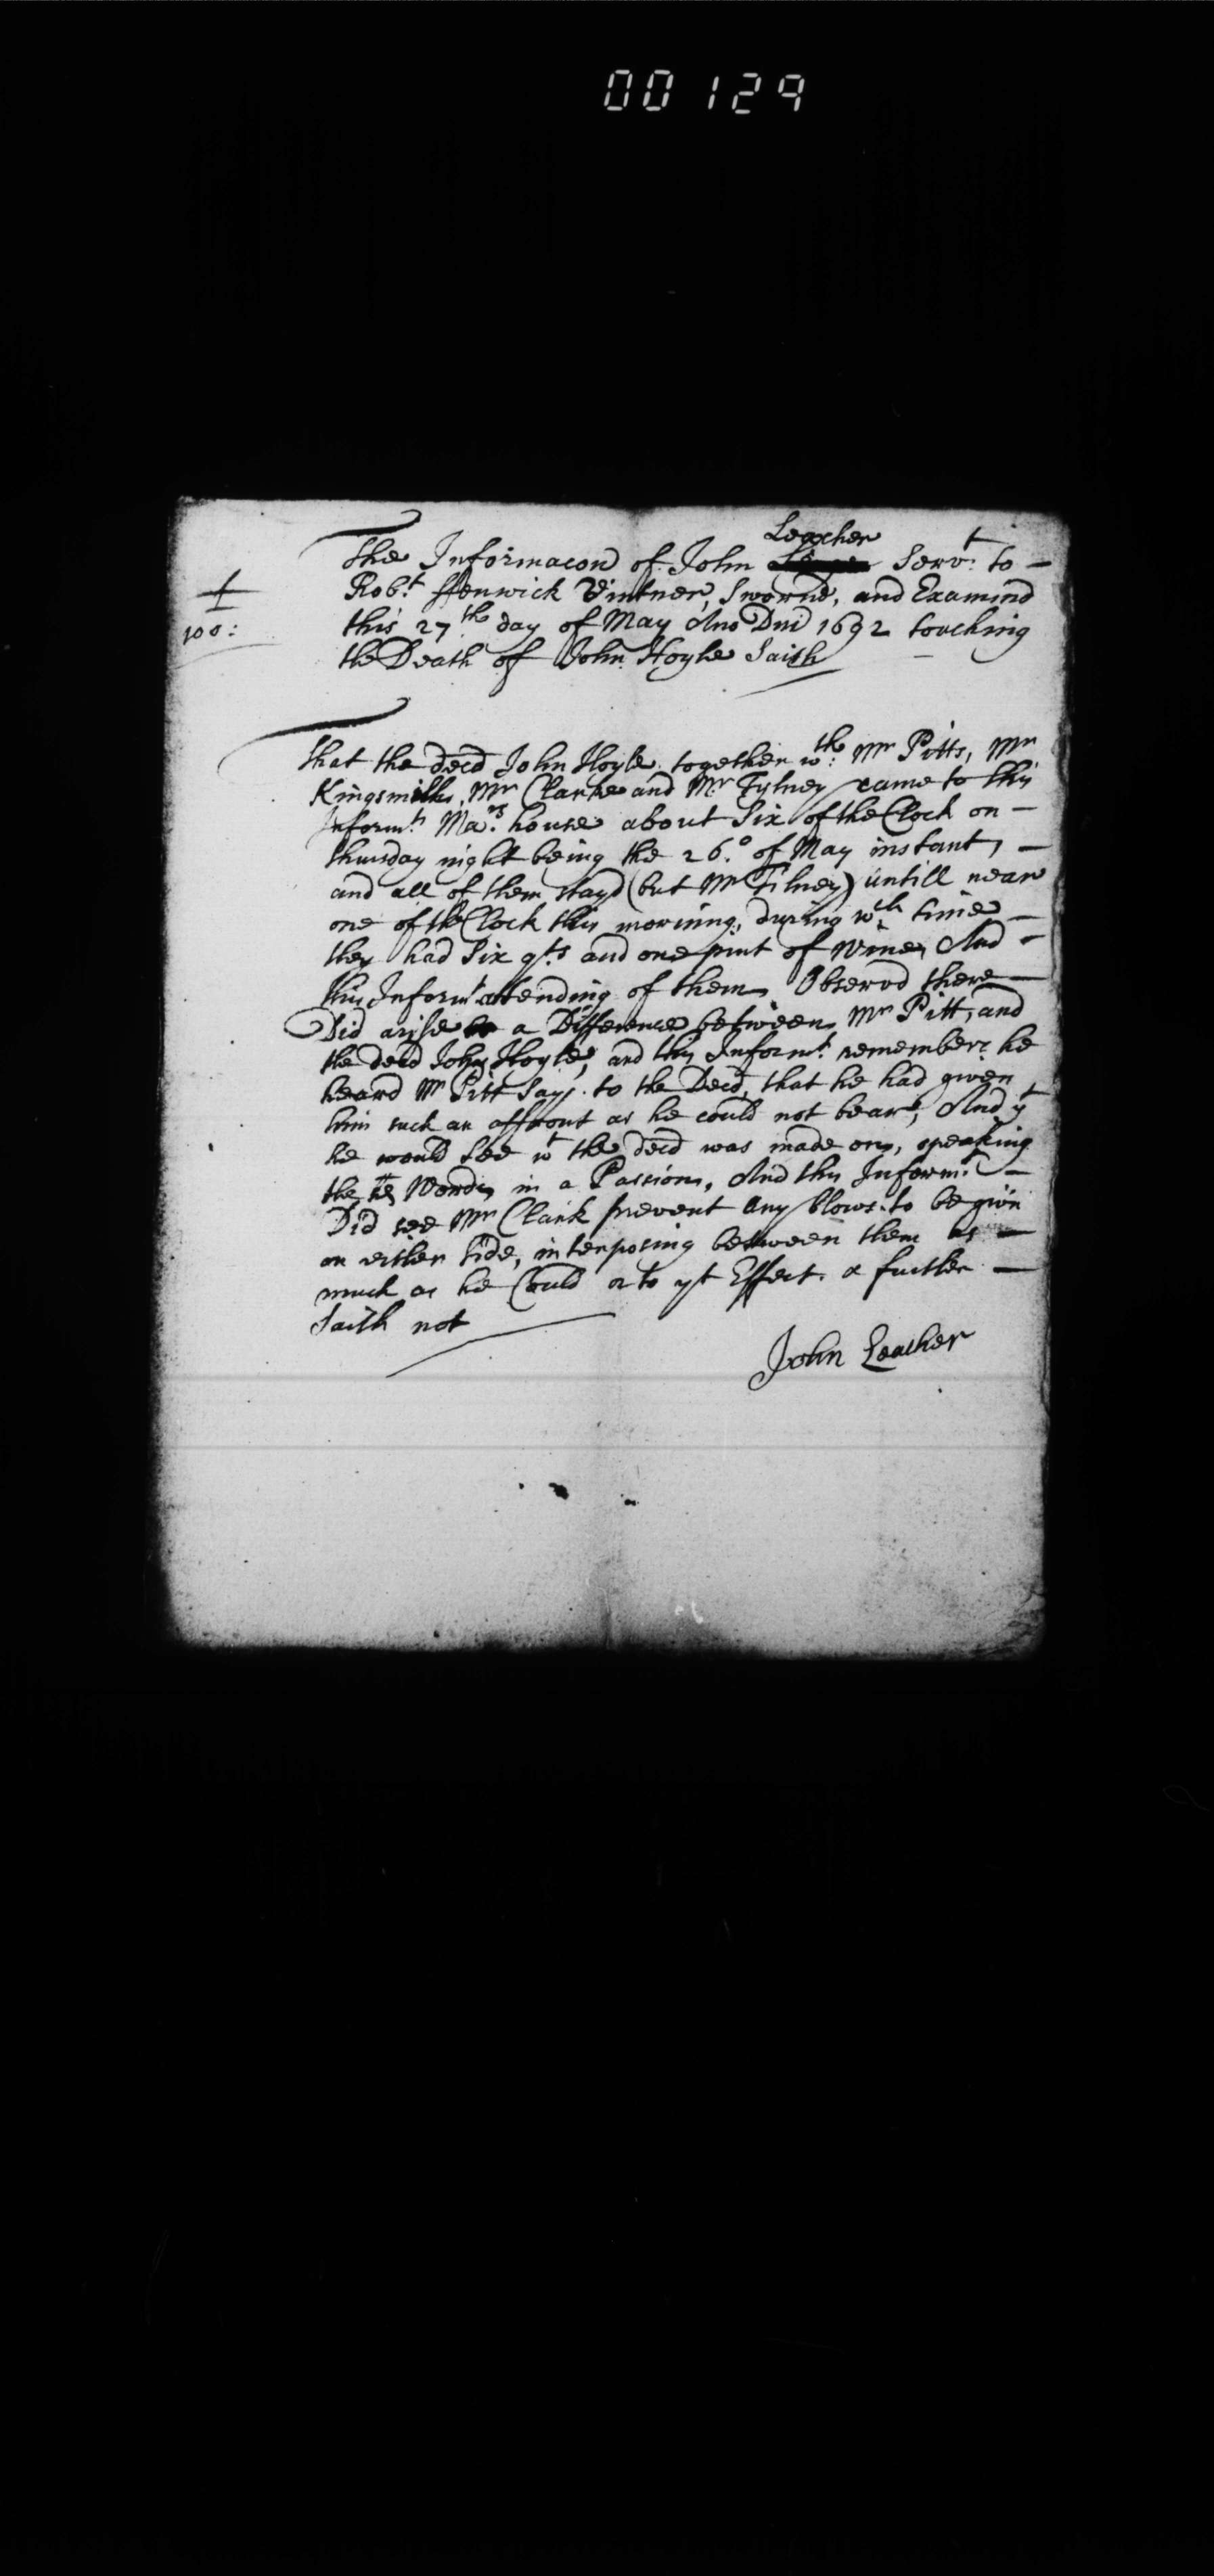 00129
The Informacon of John Leacher Servt. to -
Robt. ffenwick Vintner, Sworne, and Examind
100:
this 27th day of May Ano Dni 1692 touching
the Death of John Hoyle Saith
That the decd John Hoyle together wth: Mr Pitts, Mr
Kingsmills, Mr Clarke and Mr Tylney came to this
Informts Mars. house about Six of the Clock on -
thursday night being the 26.o of May instant, -
and all of them stayd (but Mr Tilney) untill near
one of the Clock this morning, during wch. time -
they had Six qts. and one pint of Wine, And -
this Informt attending of them, Observd there -
Did arise a Difference between Mr Pitt, and
the decd John Hoyle, and this Informt. remembers he
heard Mr Pitt Say, to the Decd, that he had given
him such an affront as he could not beare, And yt
he would See wt the decd was made on, speaking
the Words in a Passion, And this Informt. -
Did see Mr Clark prevent any blows to be given
on either Side, interposing between them as -
much as he Could or to yt Effect. & further -
Saith not
John Leacher